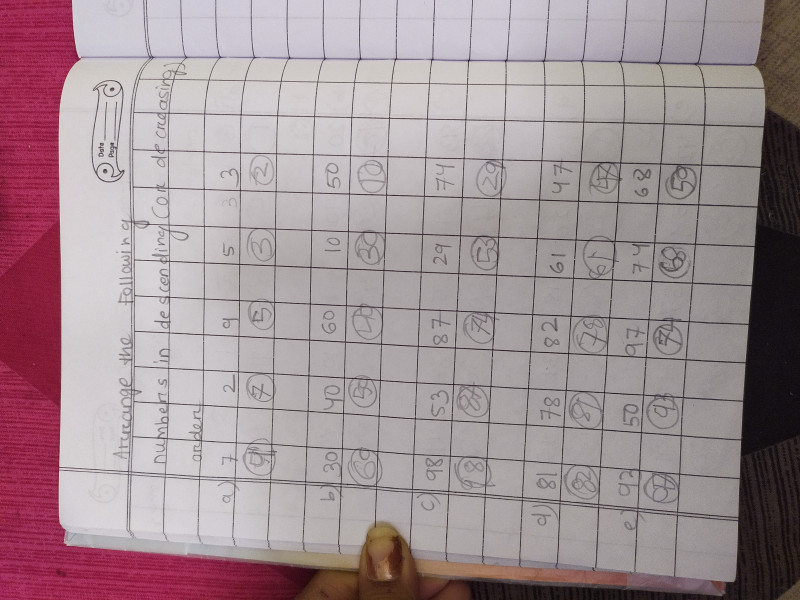 Date
Page
Arrange the following
numbers in descending (or decreasing)
order
a) 7 2 9 5 3 3
9 7 5 3 2
b) 30 40 60 10 50
60 50 40 30 10
c) 98 53 87 29 74
98 87 74 53 29
d) 81 78 82 61 47
82 81 78 61 47
e) 92 50 97 74 68
97 93 74 68 50